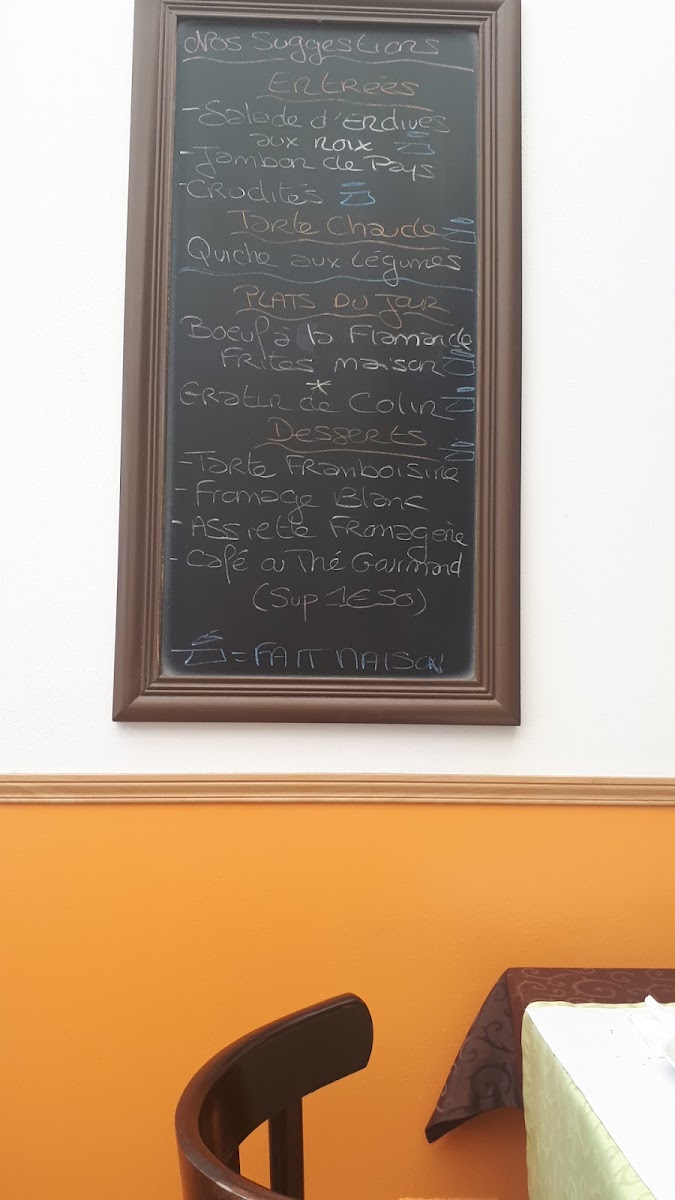 Nos Suggestions
Entrées
- Salade d'Endives
aux noix
- Jambon de Pays
- Crudités
Tarte Chaude
Quiche aux légumes
Plats du Jour
Boeuf à la Flamande
Frites maison
*
Gratin de Colin
Desserts
- Tarte Framboisine
- Fromage Blanc
- Assiette Fromagerie
- Café ou Thé Gourmand
(Sup 1€50)
= FAIT MAISON